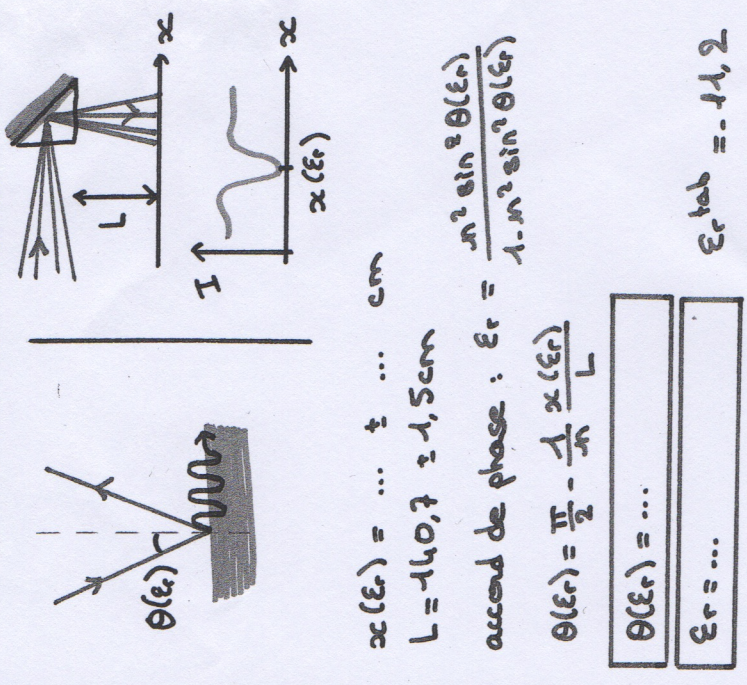 θ(εr)
L
x
I
x
x(εr)
x(εr) = ... ± ... cm
L = 140,7 ± 1,5 cm
accord de phase : εr = n² sin² θ(εr) / 1 - n² sin² θ(εr)
θ(εr) = π/2 - 1/n x(εr)/L
θ(εr) = ...
εr = ...
εr tab = -11,2